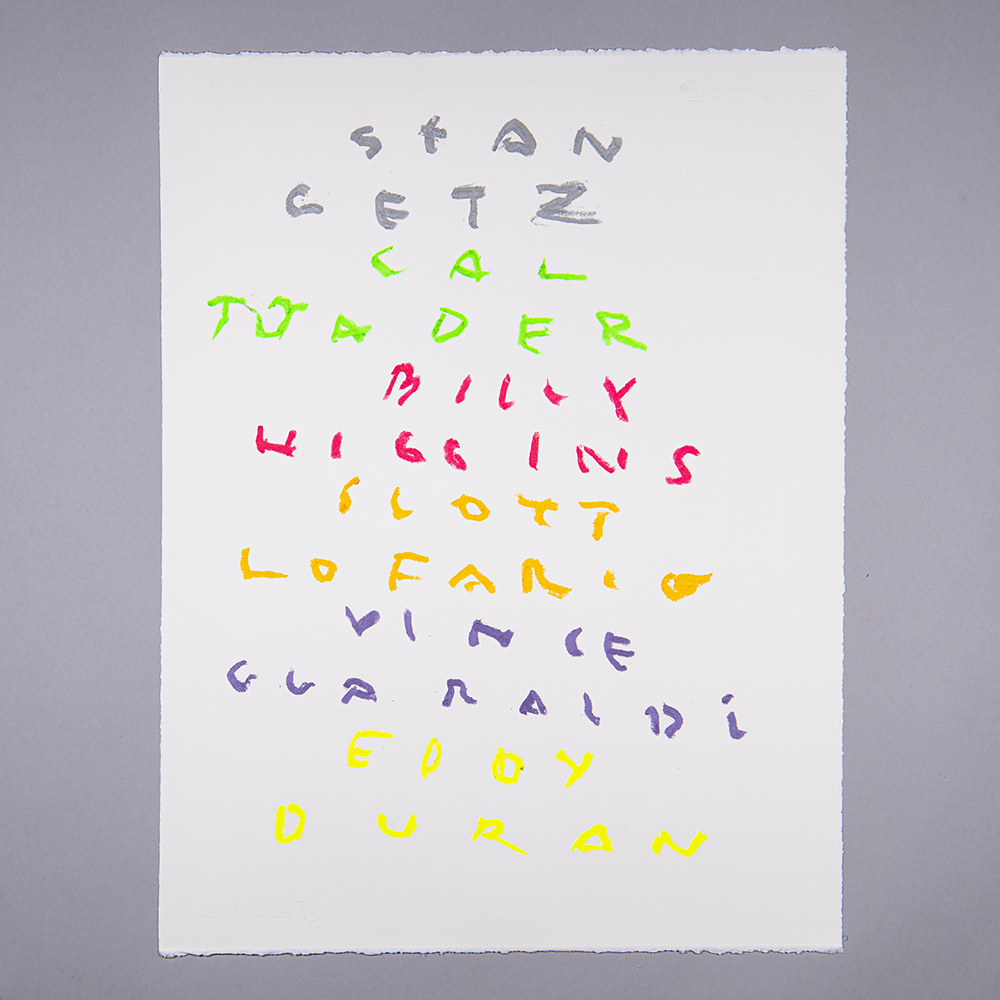 STAN
GETZ
CAL
TJADER
BILLY
HIGGINS
SCOTT
LOFARIO
VINCE
GUARALDI
EDDY
DURAN